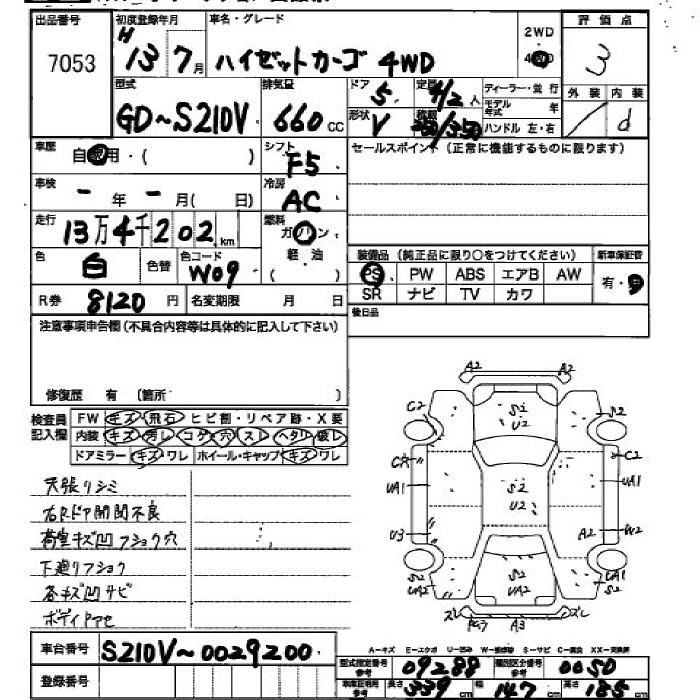 出品番号 初度登録年月 車名・グレード 2WD 評価点
7053 H 13年7月 ハイゼットカーゴ 4WD 4WD 3
型式 排気量 ドア 定員 ディーラー・並行 外装 内装
GD~S210V 660cc 5 4/2人 モデル年式 年 d
形状 V 積載 250/350 ハンドル 左・右
車歴 自家用・( ) シフト F5 セールスポイント (正常に機能するものに限ります)
車検 - 年 - 月( 日) 冷房 AC
走行 13万4千202km 燃料 ガソリン
色 白 色替 色コード W09 軽・油 ( )
装備品 (純正品に限り○をつけてください) 新車保証書
PS PW ABS エアB AW 有・無
SR ナビ TV カワ
R券 8120円 名変期限 月 日
後日品
注意事項申告欄(不具合内容等は具体的に記入して下さい)
修復歴 有 (箇所 )
検査員記入欄 FW キズ 飛石 ヒビ割・リペア跡・X要
内装 キズ 汚レ コゲ 穴 スレ ヘタリ 破レ
ドアミラー キズ ワレ ホイール・キャップ キズ ワレ
天張リシミ
右Rドア開閉不良
荷室キズ凹フショク穴
下廻リフショク
各キズ凹サビ
ボディ
A2 A2
C2 S2 U2 S2
C2
UA1 S2 U2 UA1
U3 A2 W2
S2 UA2 S2 UA2 UA1 S2
ズレ A3 ズレ
車台番号 S210V~0029200
A-キズ E-エクボ U-凹み W-補修跡 S-サビ C-腐食 XX-交換済
型式指定番号 参考 09288 類別区分番号 参考 0050
登録番号 車庫証明用 参考 長さ 339cm 幅 147cm 高さ 185cm